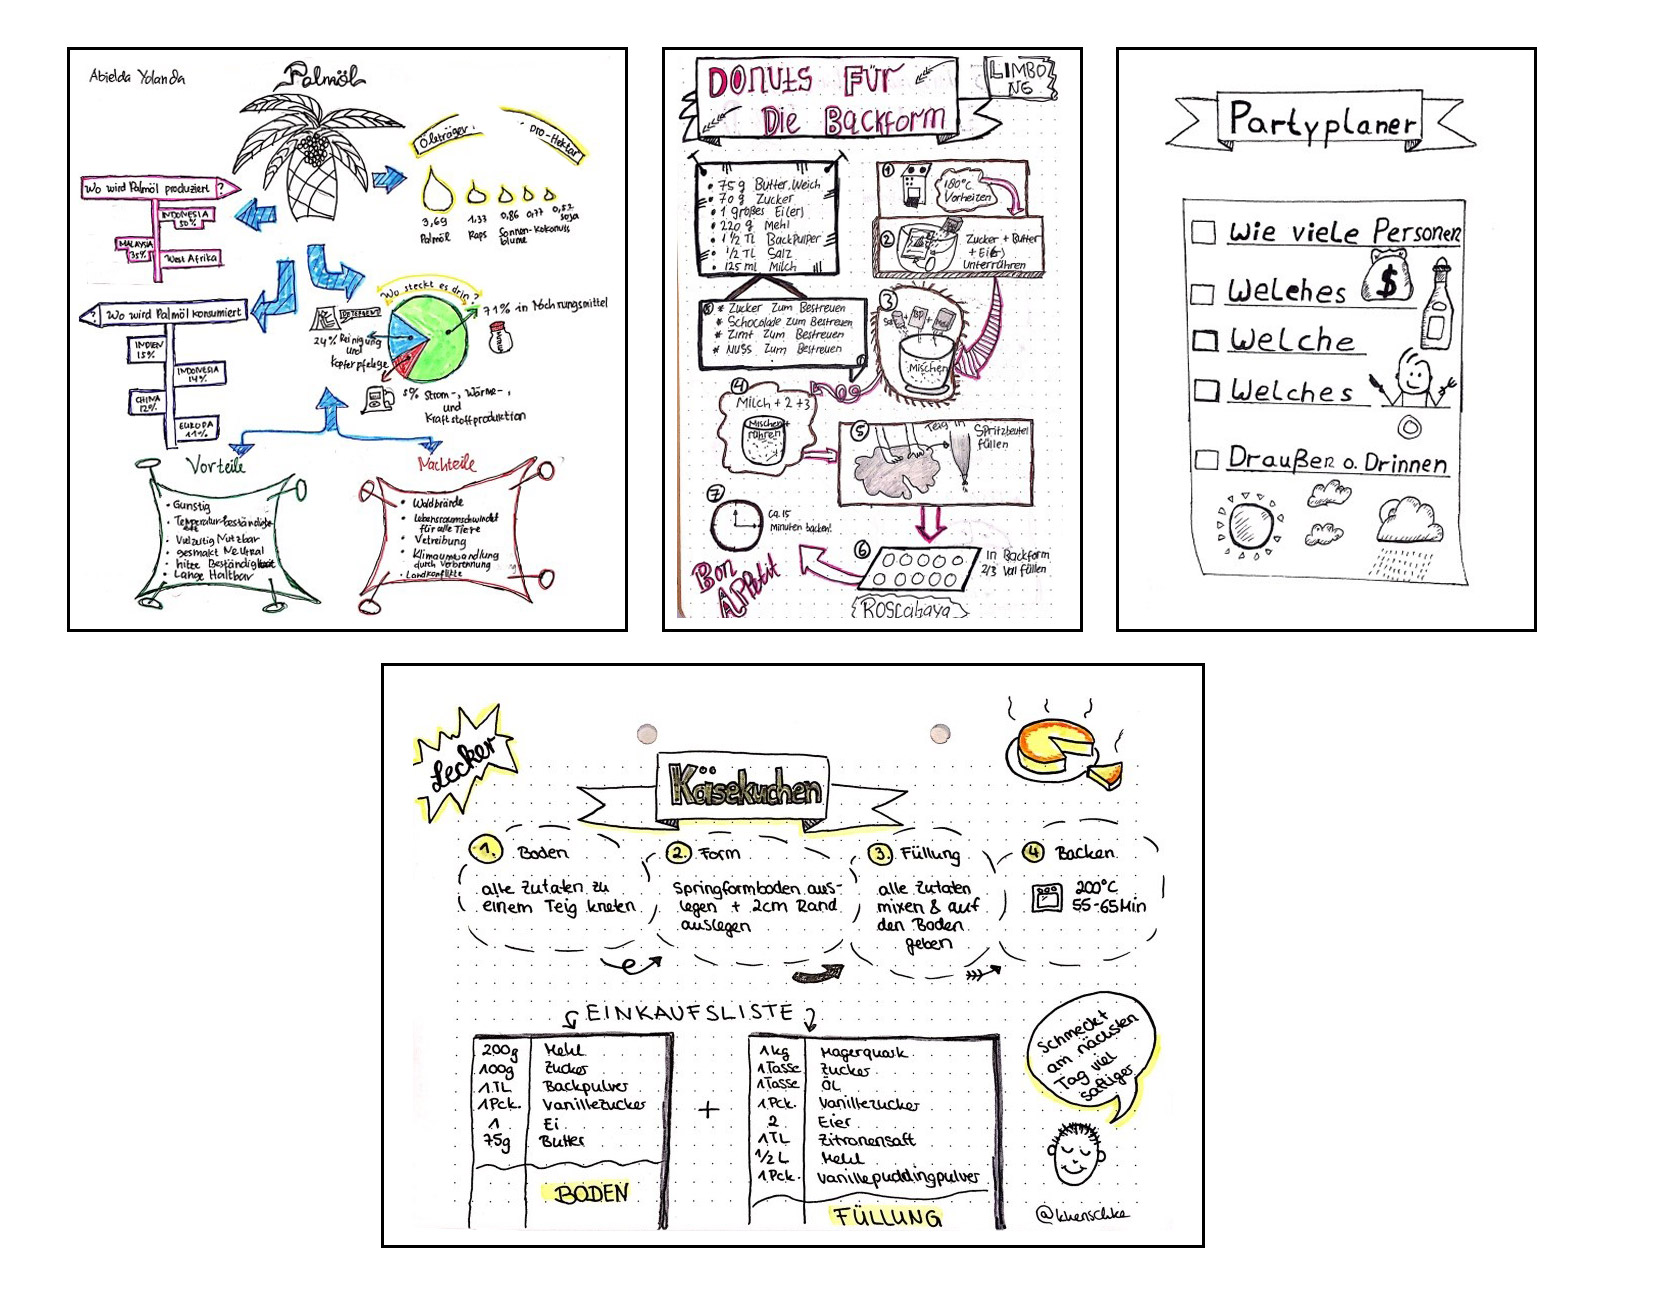 Abielda Yolanda
Palmöl
Ölerträger:
Pro-Hektar
Wo wird Palmöl produziert ?
INDONESIA
50%
MALAYSIA
35%
West Afrika
3,69
Palmöl
1,33
Raps
0,86
Sonnen-
blume
0,77
Kokonuss
0,52
Soja
? Wo wird Palmöl konsumiert
INDIEN
15%
INDONESIA
14%
CHINA
12%
EUROPA
11%
Wo steckt es drin?
71% in Nöchrungsmittel
24% Reinigung
und
Körperpflege
5% Strom-, Wärme-,
und
Kraftstoffproduktion
Vorteile
• Günstig
• Vielzeitig Nutzbar
• gesmakt Neutral
• hitze Beständigkeit
• Lange Haltbar
Nachteile
• Waldbrände
• Lebensraumschwindet
für alle Tiere
• Vetreibung
• Klimaumwandlung
durch Verbrennung
• Landkonflikte
DONUTS FÜR
Die Backform
LIMBO
NG
• 75 g Butter, Weich
• 70 g Zucker
• 1 großes Ei(er)
• 220 g Mehl
• 1 1/2 TL BackPulper
• 1/2 TL Salz
• 125 ml Milch
1
180°C
Vorheizen
2
Zucker + Butter
+ Ei(er)
Unterrühren
8
* Zucker Zum Bestreuen
* Schocolade Zum Bestreuen
* Zimt Zum Bestreuen
* NUSS Zum Bestreuen
3
Mischen
4
Milch + 2 + 3
Mischen +
rühren
5
Teig in
Spritzbeutel
füllen
6
in Backform
2/3 Voll füllen
7
ca. 15
Minuten backen!
Bon
APPetit
Roscahaya
Partyplaner
Wie viele Personen
Welches
$
Welche
Welches
Draußen o. Drinnen
Lecker
Käsekuchen
1. Boden
alle Zutaten zu
einem Teig kneten
2. Form
Springformboden aus-
legen + 2cm Rand
auslegen
3. Füllung
alle Zutaten
mixen & auf
den Boden
geben
4 Backen
200°C
55-65Min
EINKAUFSLISTE
200g Mehl
100g Zucker
1TL Backpulver
1Pck. Vanillezucker
1 Ei
75g Butter
BODEN
+
1kg Magerquark
1Tasse Zucker
1Tasse ÖL
1Pck. Vanillezucker
2 Eier
1TL Zitronensaft
1/2 L Mehl
1Pck. Vanillepuddingpulver
FÜLLUNG
Schmeckt
am nächsten
Tag viel
saftiger